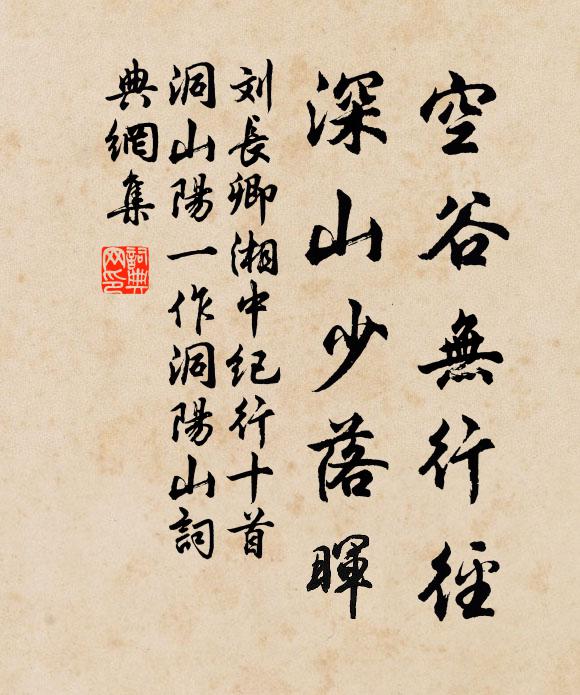 空谷無行徑
深山少落暉
刘長卿湘中纪行十首
洞山陽一作洞陽山詞
典網集
詞典網印